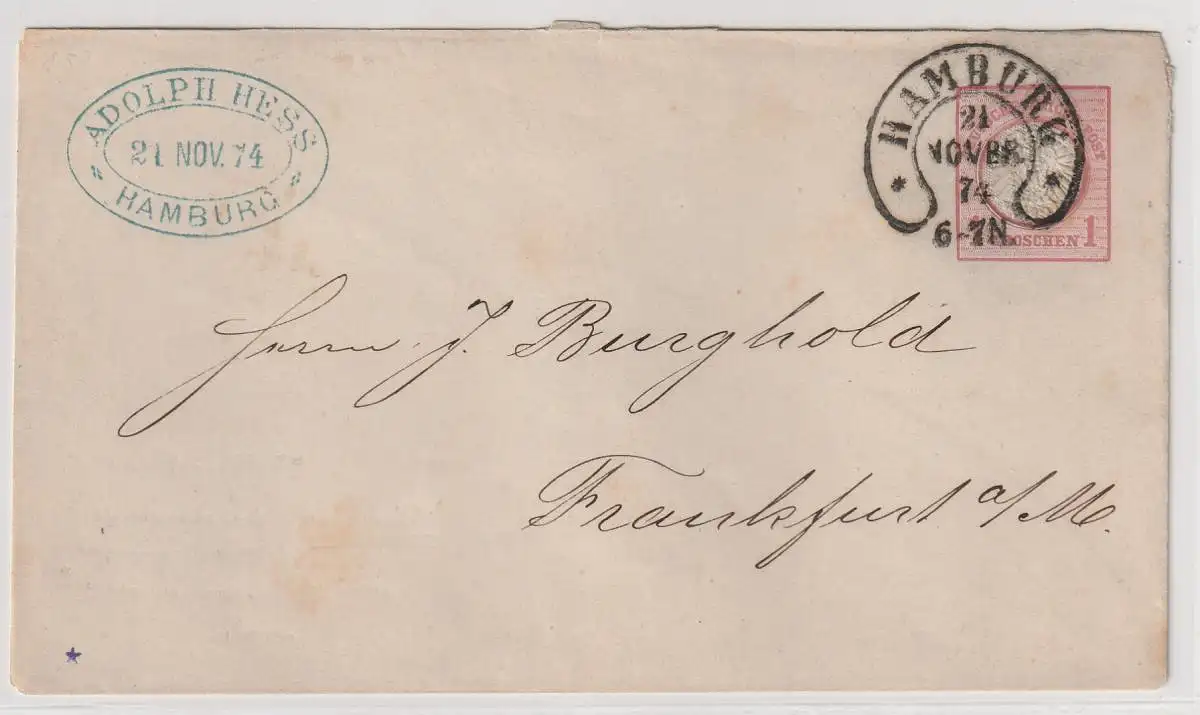 ADOLPH HESS
21 NOV. 74
HAMBURG
HAMBURG
21
NOVBR.
74
6-7N.
POST
1 GROSCHEN 1
Herrn J. Burghold
Frankfurt a/M.